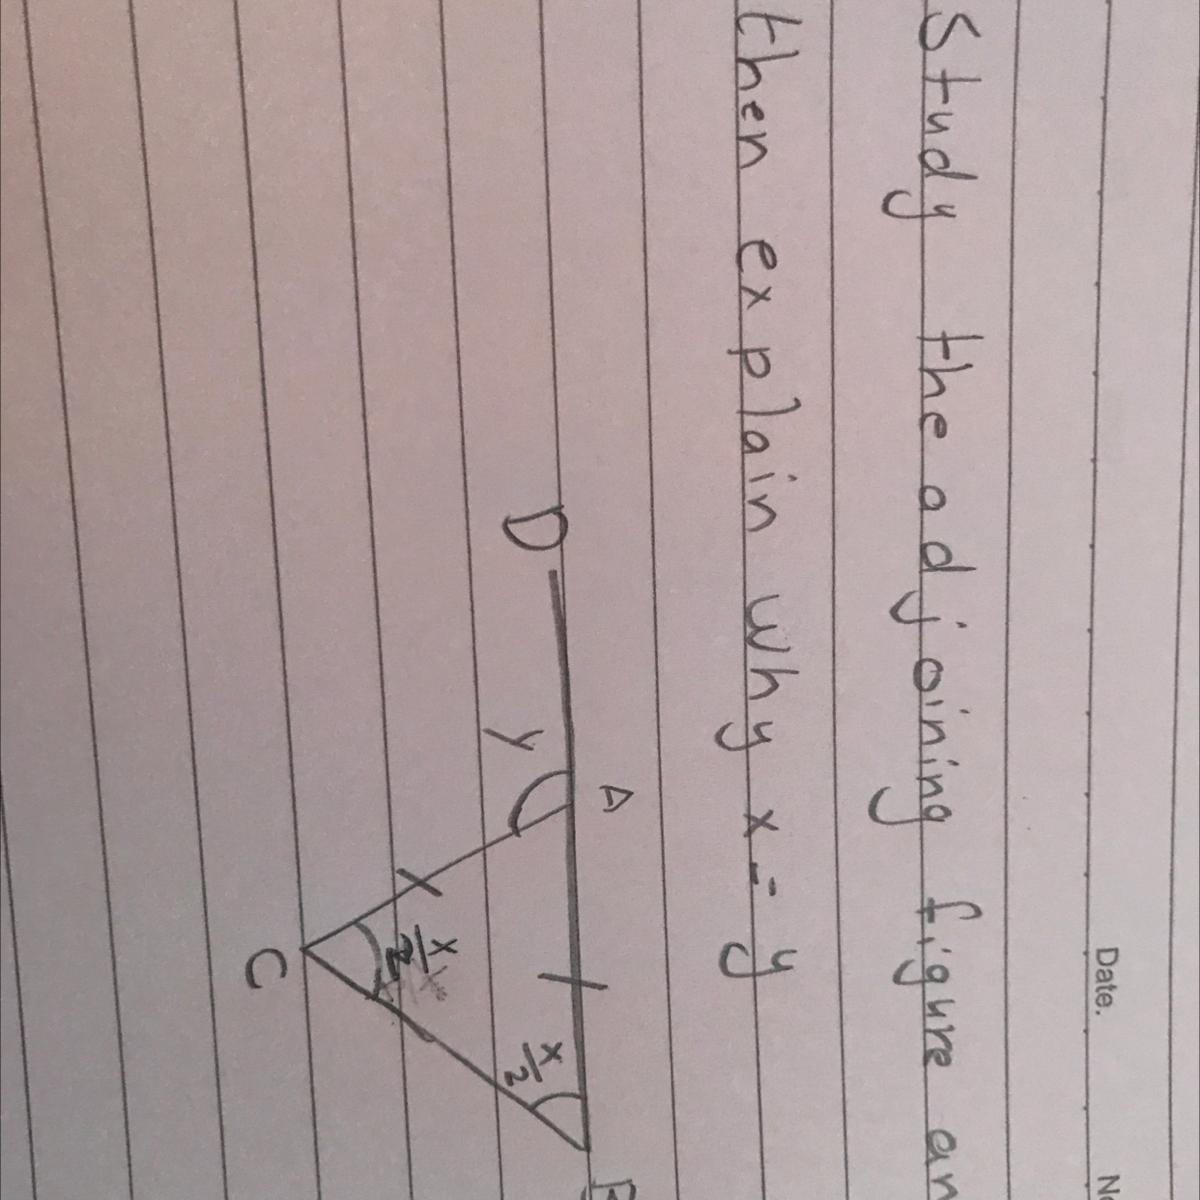 Date.
Study the adjoining figure an
then explain why x = y
D
A
y
x/2
x/2
C